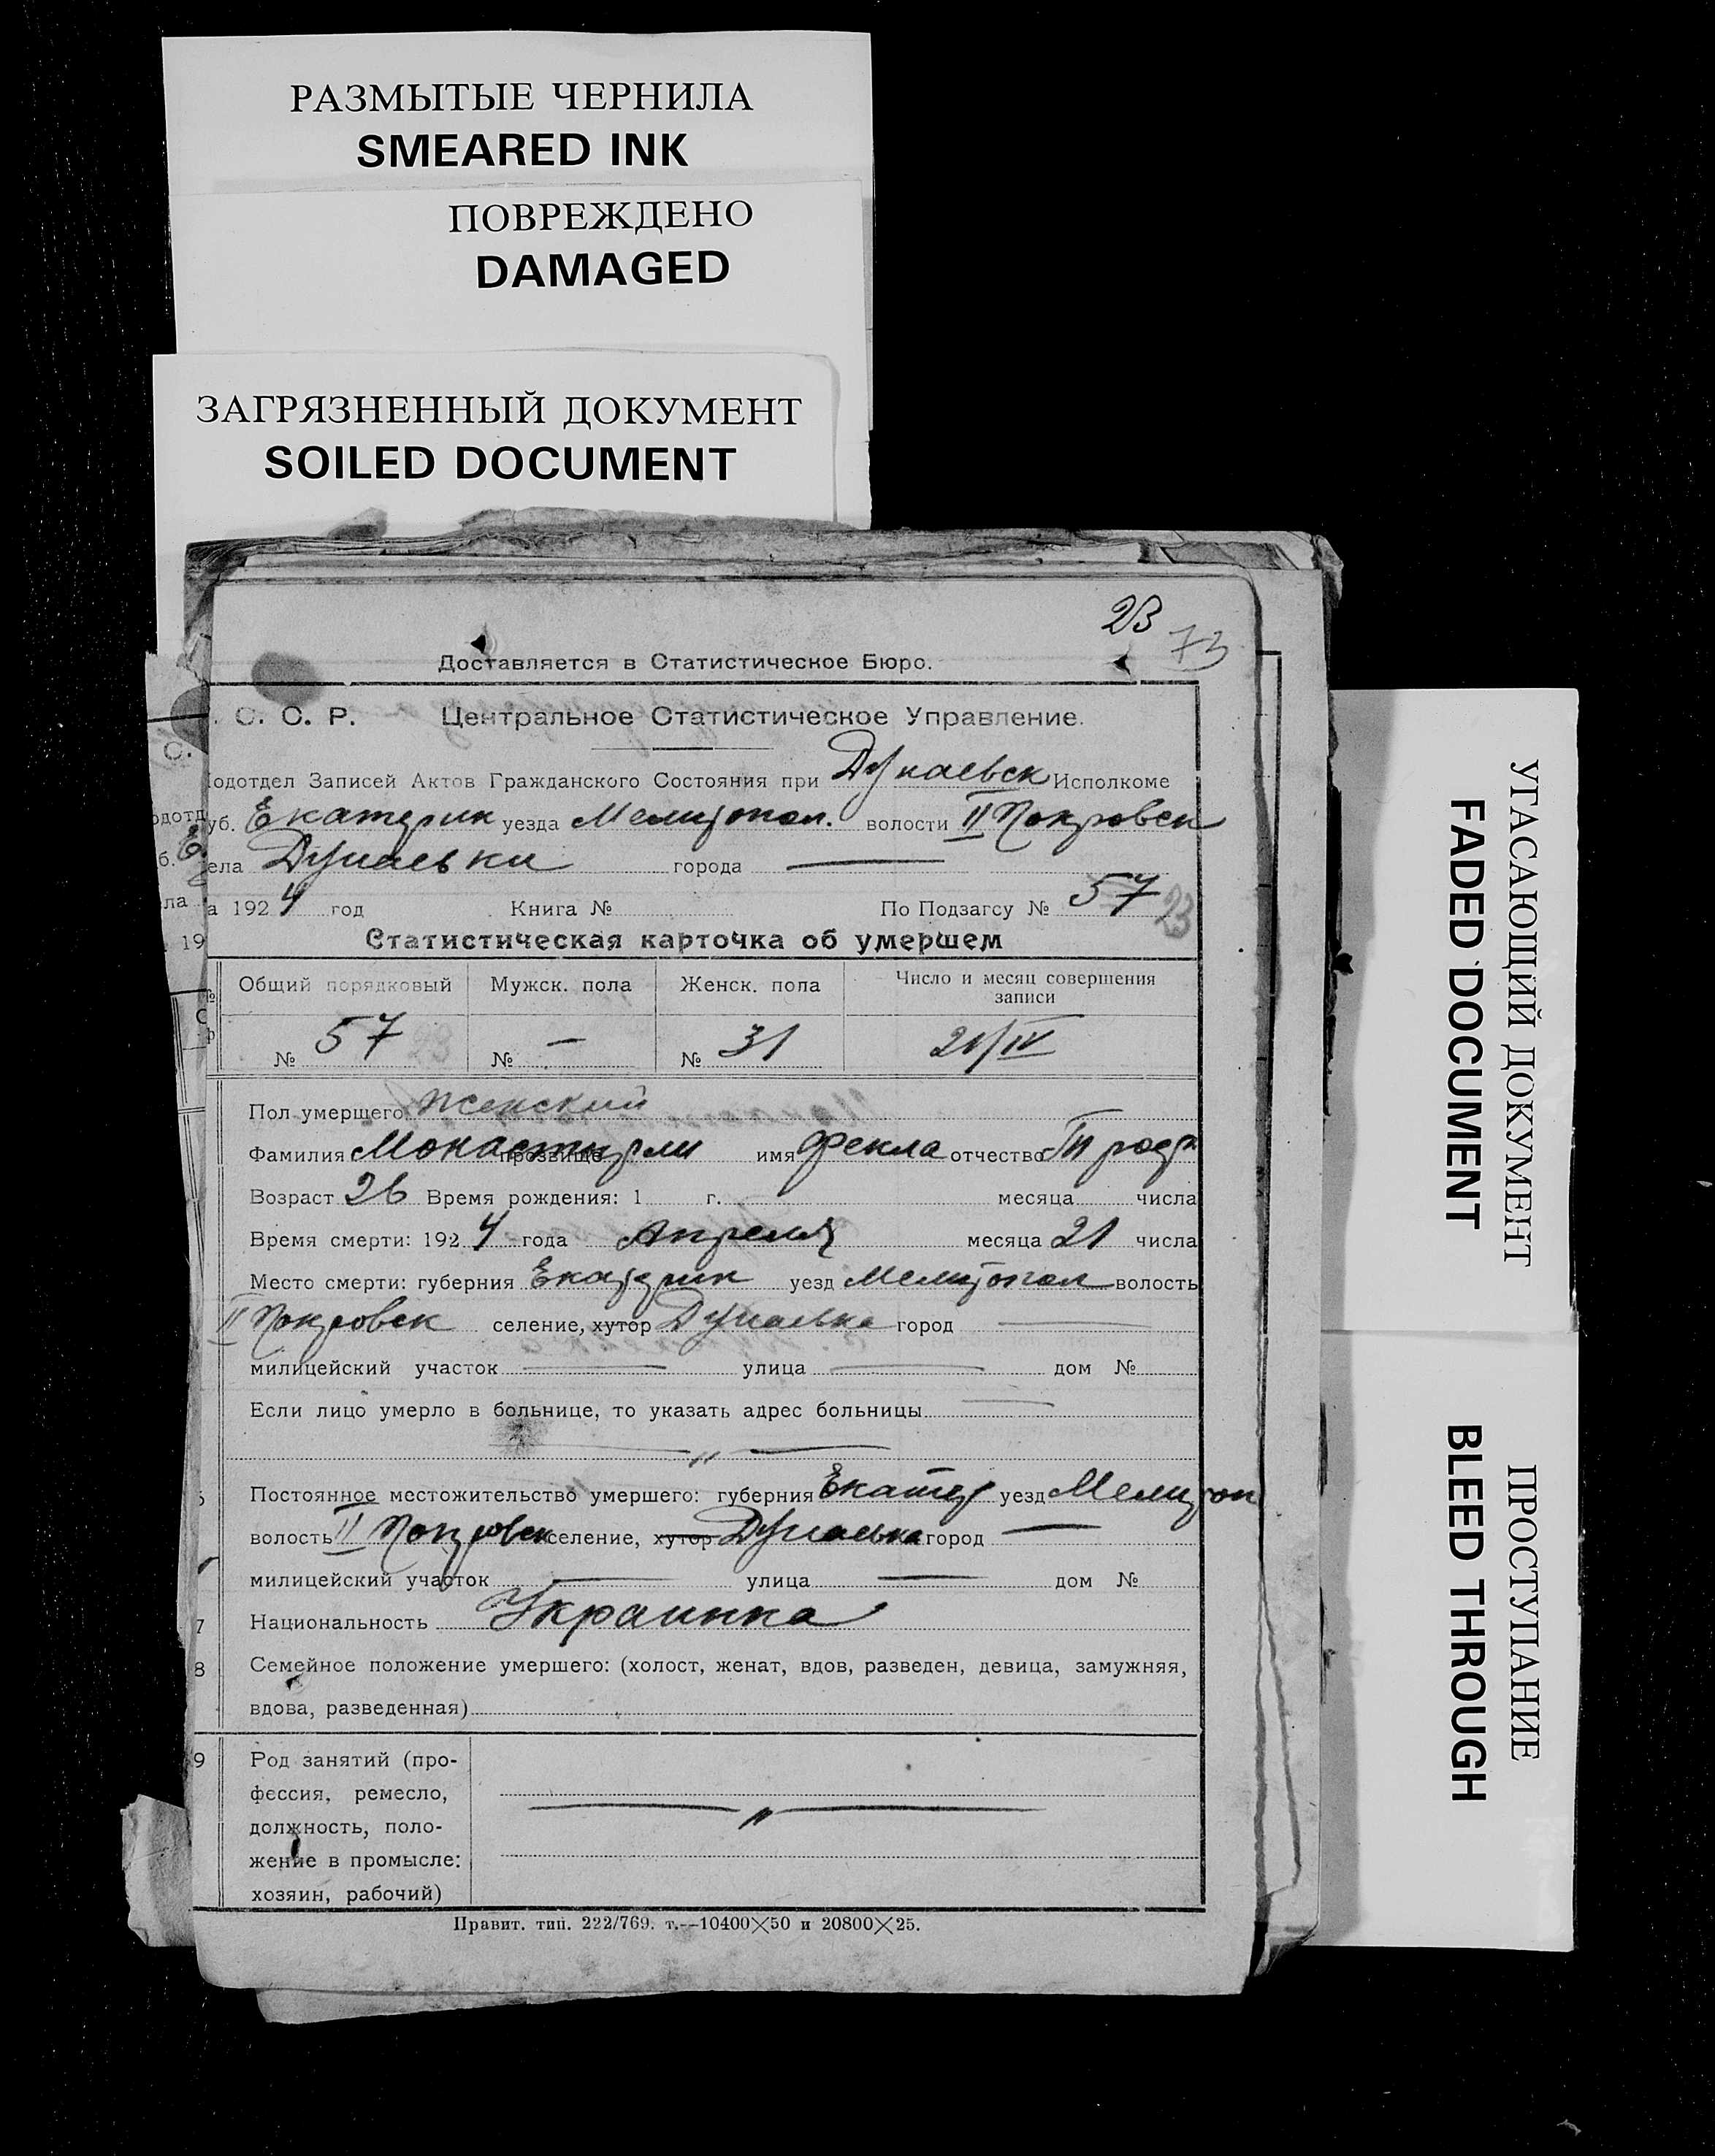 РАЗМЫТЫЕ ЧЕРНИЛА
SMEARED INK
ПОВРЕЖДЕНО
DAMAGED
ЗАГРЯЗНЕННЫЙ ДОКУМЕНТ
SOILED DOCUMENT
23
73
Доставляется в Статистическое Бюро.
. С. С. Р. Центральное Статистическое Управление.
одотдел Записей Актов Гражданского Состояния при Дунаевск Исполкоме
уб. Екатерин уезда Мелитопол. волости II Покровск
ела Дунаевки города —
а 1924 год Книга № По Подзагсу № 57 23
Статистическая карточка об умершем
Общий порядковый Мужск. пола Женск. пола Число и месяц совершения записи
№ 57 23 № — № 31 21/IV
Пол умершего Женский
Фамилия Монастырли прозвище имя Фекла отчество
Возраст 26 Время рождения: 1 г. месяца числа
Время смерти: 1924 года Апреля месяца 21 числа
Место смерти: губерния Екатерин уезд Мелитопол волость
II Покровск селение, хутор Дунаевка город —
милицейский участок — улица — дом №
Если лицо умерло в больнице, то указать адрес больницы —
— " —
Постоянное местожительство умершего: губерния Екатер уезд Мелитоп
волость II Покровск селение, хутор Дунаевка город —
милицейский участок — улица — дом №
7 Национальность Украинка
8 Семейное положение умершего: (холост, женат, вдов, разведен, девица, замужняя,
вдова, разведенная)
9 Род занятий (про-
фессия, ремесло,
должность, поло-
жение в промысле:
хозяин, рабочий)
— " —
Правит. тип. 222/769. т.—10400×50 и 20800×25.
УГАСАЮЩИЙ ДОКУМЕНТ
FADED DOCUMENT
ПРОСТУПАНИЕ
BLEED THROUGH